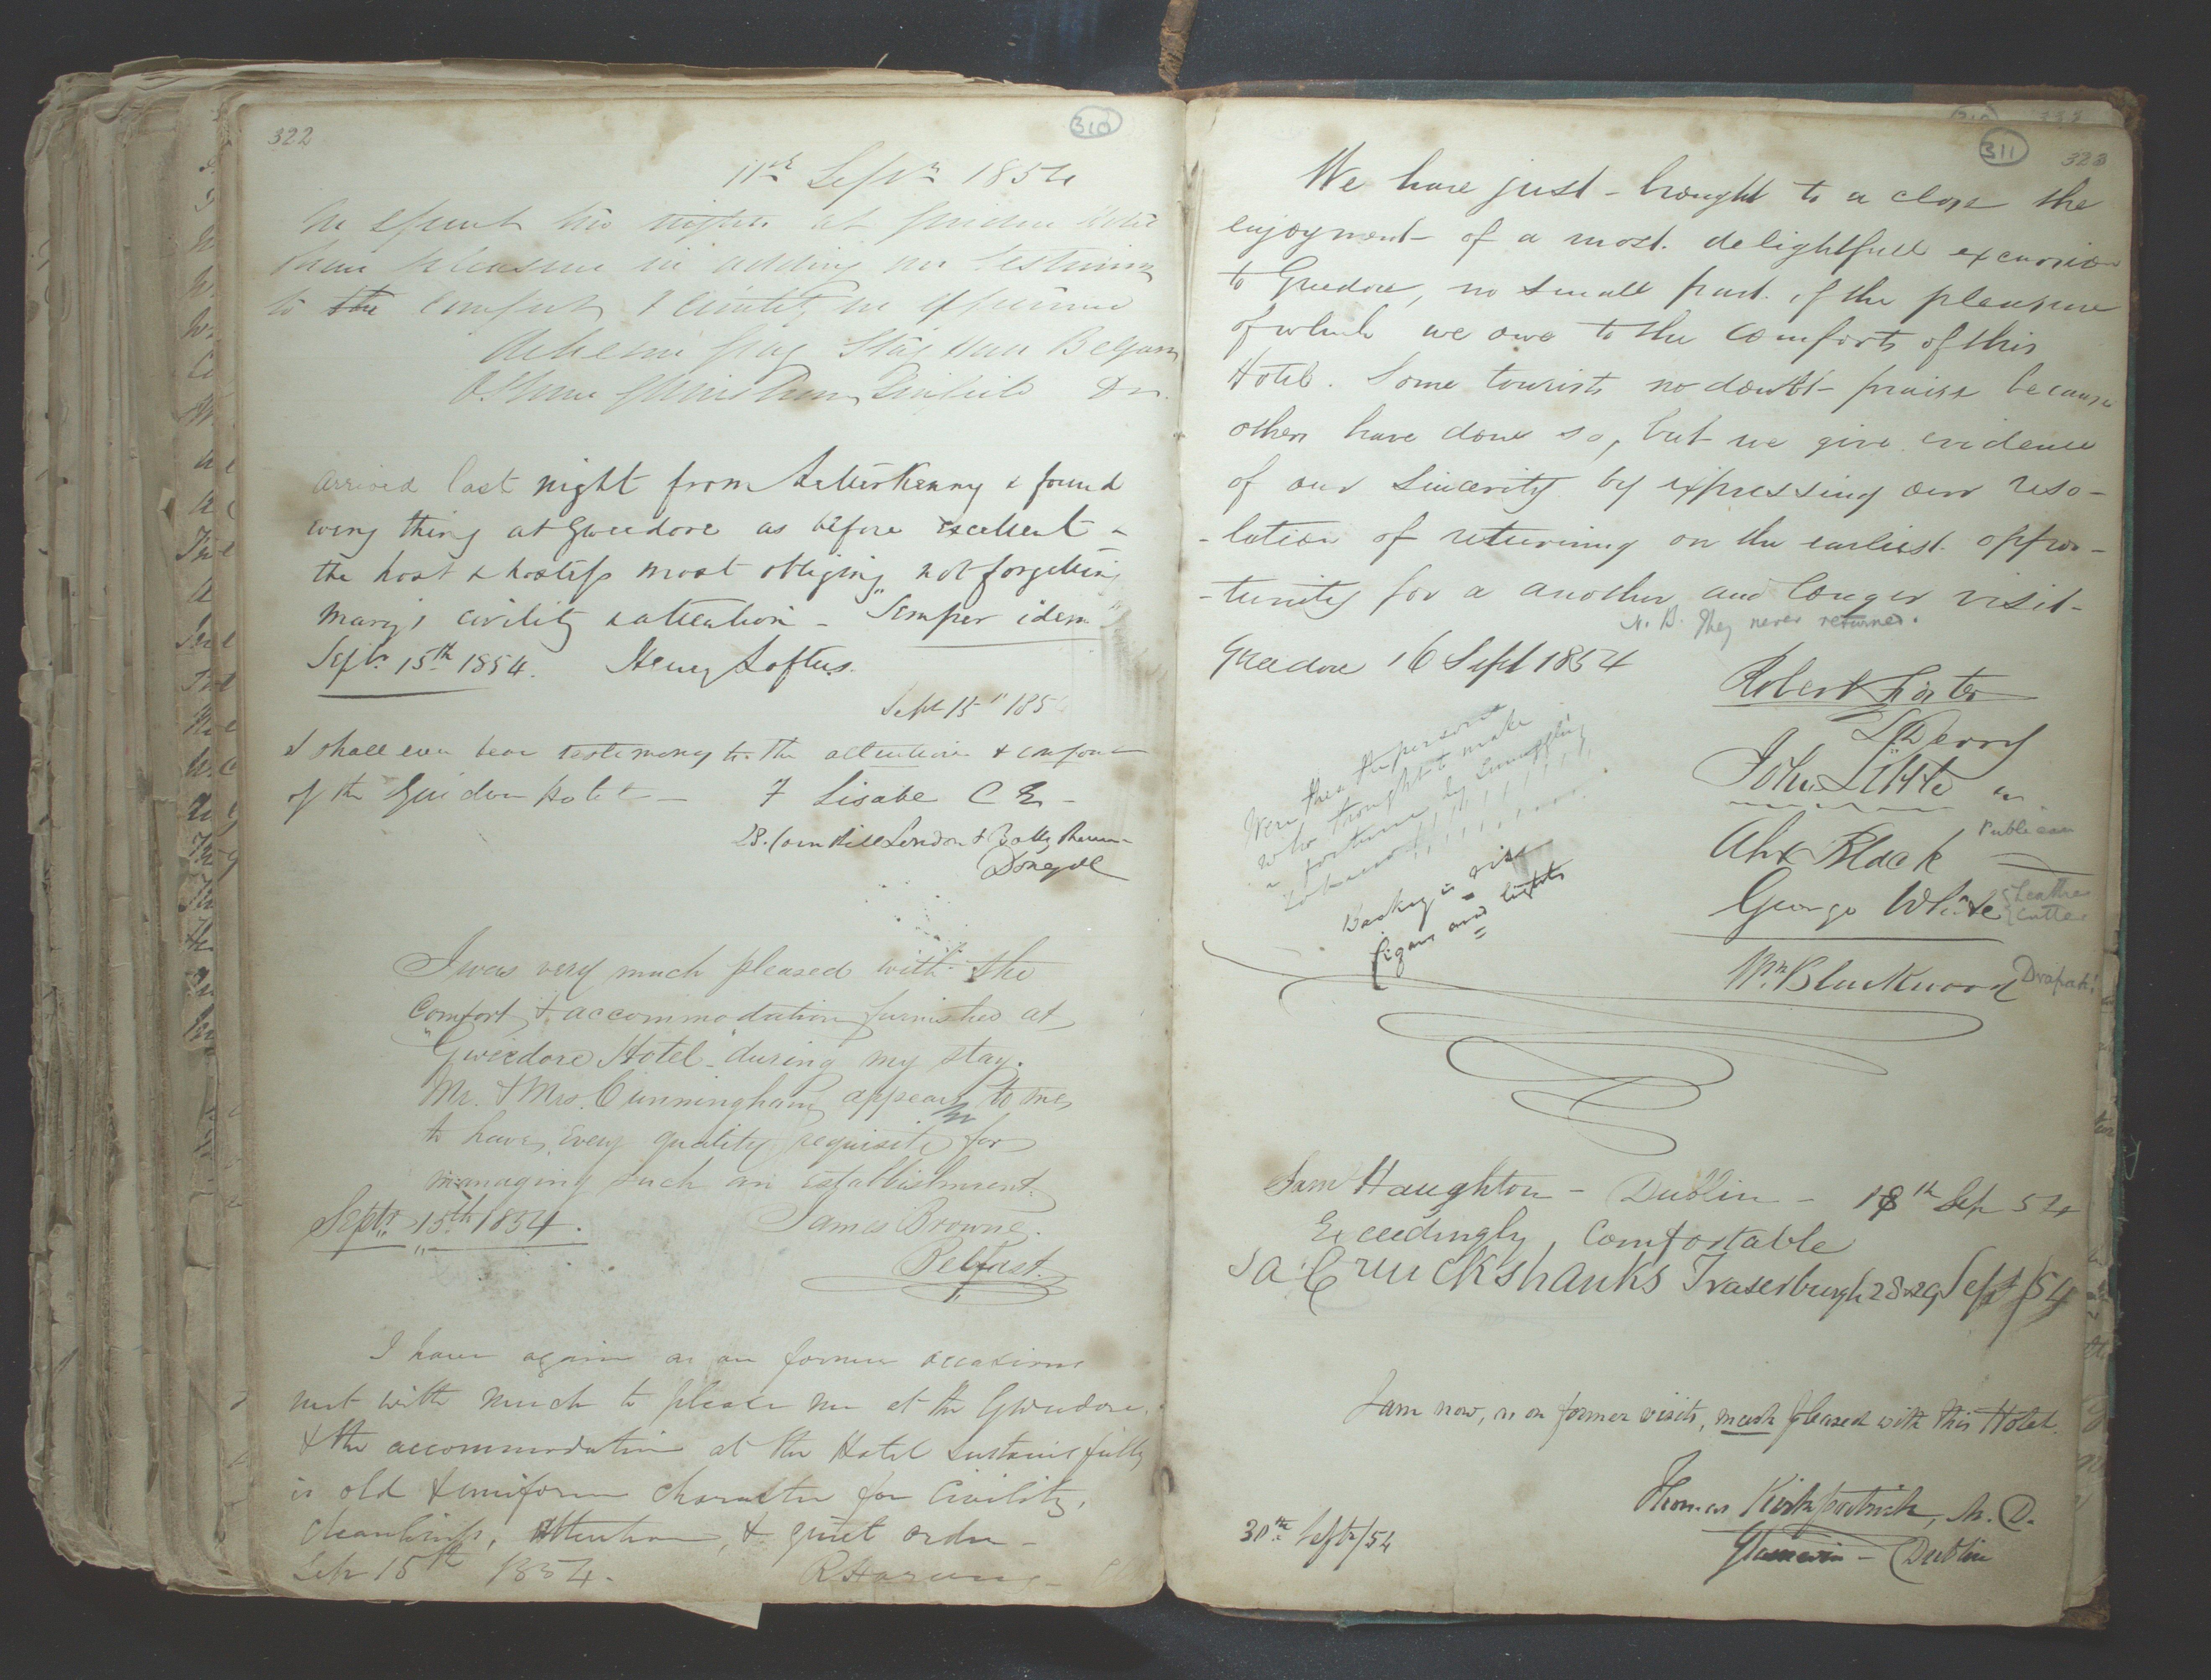 322
310
11th Septr 1854
to the comfort & civility we experienced
arrived last night from Letterkenny & found
every thing at Gweedore as before excellent -
the host & hostess most obliging, not forgetting
Mary's civility & attention - "Semper idem"
Septr 15th 1854. Henry Loftus.
Sept 15" 185
I shall ever bear testimony to the attention & comfort
of the Guidore Hotel - F Lisabe C E -
28. Cornhill London &
Donegal
I was very much pleased with the
Comfort & accommodation furnished at
"Gweedore Hotel" during my stay.
Mr. & Mrs. Cunningham appears to me,
to have, every quality requisite for
managing such an establishment.
Septr 15th 1854. James Browne.
Belfast.
I have again as on former occasions
met with much to please me at the Gweedore,
& the accommodation at the Hotel sustains fully
is old & uniform character for Civility,
cleanliness, Attention, & quiet order -
Sep 15th 1854.
311
323
We have just - brought to a close the
enjoyment - of a most. delightfull excursion
to Gweedore, no small part. of the pleasure
of which we owe to the comforts of this
Hotel. Some tourists no doubt - praise because
others have done so, but we give evidence
of our sincerity by expressing our reso-
-lution of returning on the earliest. oppor-
-tunity for a another and longer visit -
N. B. They never returned.
Gweedore 16 Sept 1854
Robert
L Derry
John Little
Alex Black
Publican
George White
Leather
Cutter
Wm Blackwood
Were these the persons
who thought to make
a fortune by smuggling
tobacco!!!!!!!!!!
Backey is rise
figars and lights
Sam Haughton - Dublin - 18th Sep 54
Exceedingly, Comfortable
Ja Cruickshanks Fraserburgh 28 & 29 Sept/54
I am now, as on former visits, much pleased with this Hotel.
Thomas Kirkpatrick, M. D.
30th Septr/54
Glasnevin - Dublin